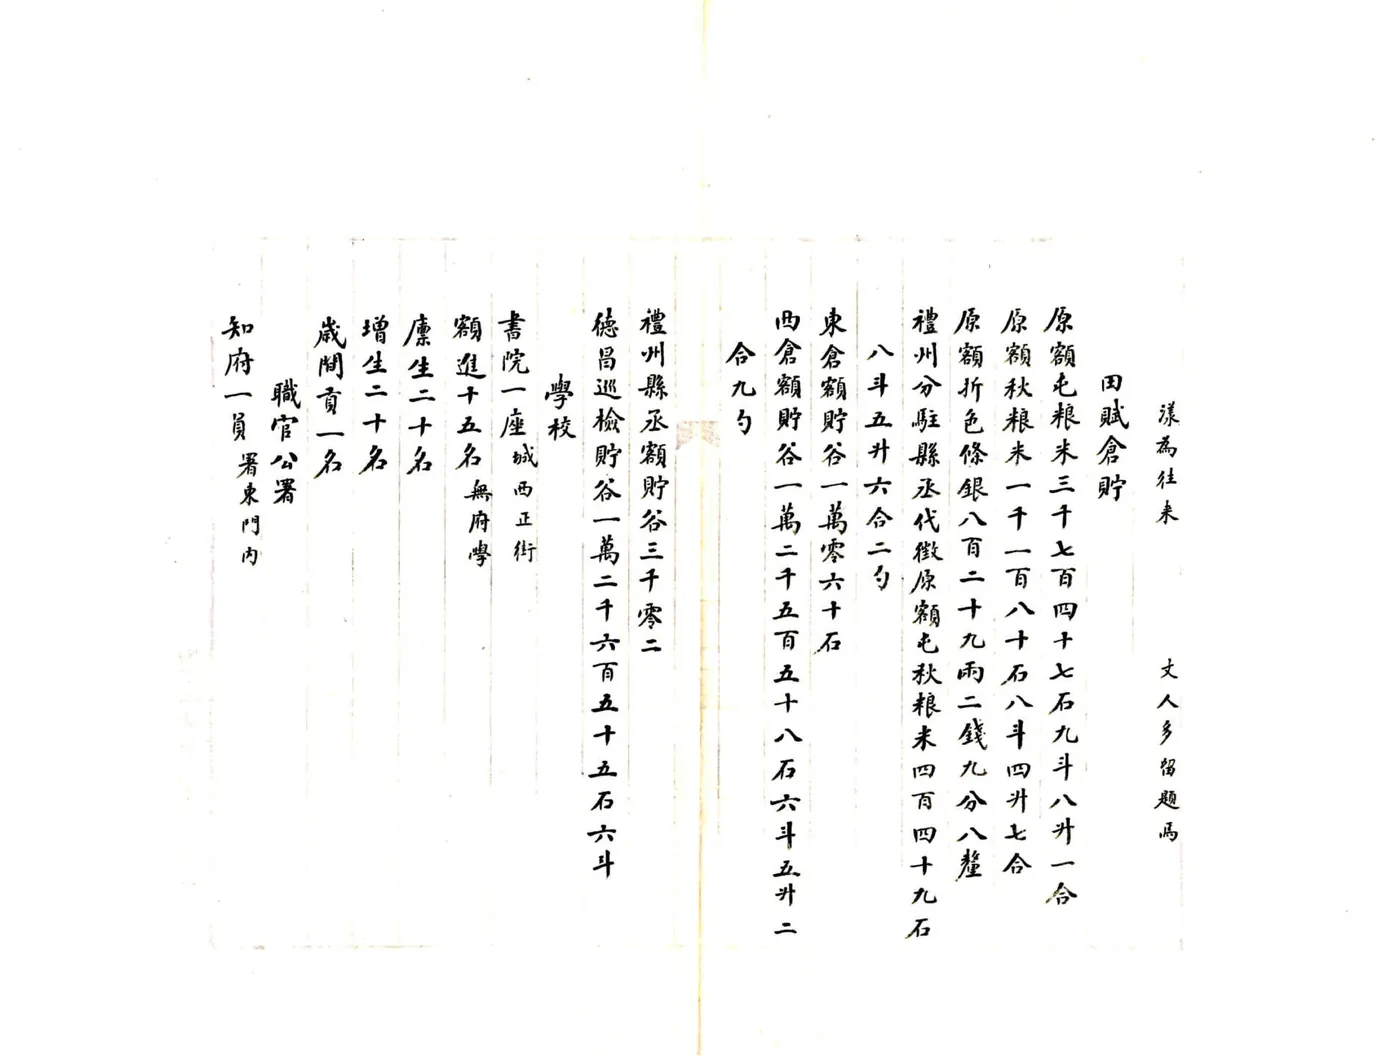 漾為往来　文人多留題焉
田賦倉貯
原額屯粮米三千七百四十七石九斗八升一合
原額秋粮米一千一百八十石八斗四升七合
原額折色條銀八百二十九兩二錢九分八釐
禮州分駐縣丞代徵原額屯秋粮米四百四十九石
八斗五升六合二勺
東倉額貯谷一萬零六十石
西倉額貯谷一萬二千五百五十八石六斗五升二
合九勺
禮州縣丞額貯谷三千零二
德昌巡檢貯谷一萬二千六百五十五石六斗
學校
書院一座城西正街
額進十五名無府學
廪生二十名
增生二十名
歲間貢一名
職官公署
知府一員署東門内